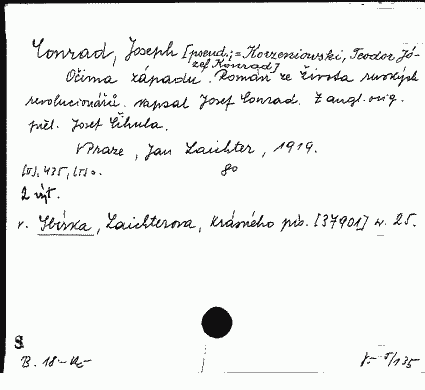 Conrad, Joseph [pseud.; = Korzeniowski, Teodor Jó-
zef Konrad]
Očima západu. Román ze života ruských
revolucionářů. Napsal Josef Conrad. Z angl. orig.
přel. Josef Čihula.
V Praze, Jan Laichter, 1919.
435, 8°
2 výt.
v. Sbírka, Laichterova, krásného pís. [37901] sv. 25.
S
B. 18-
135